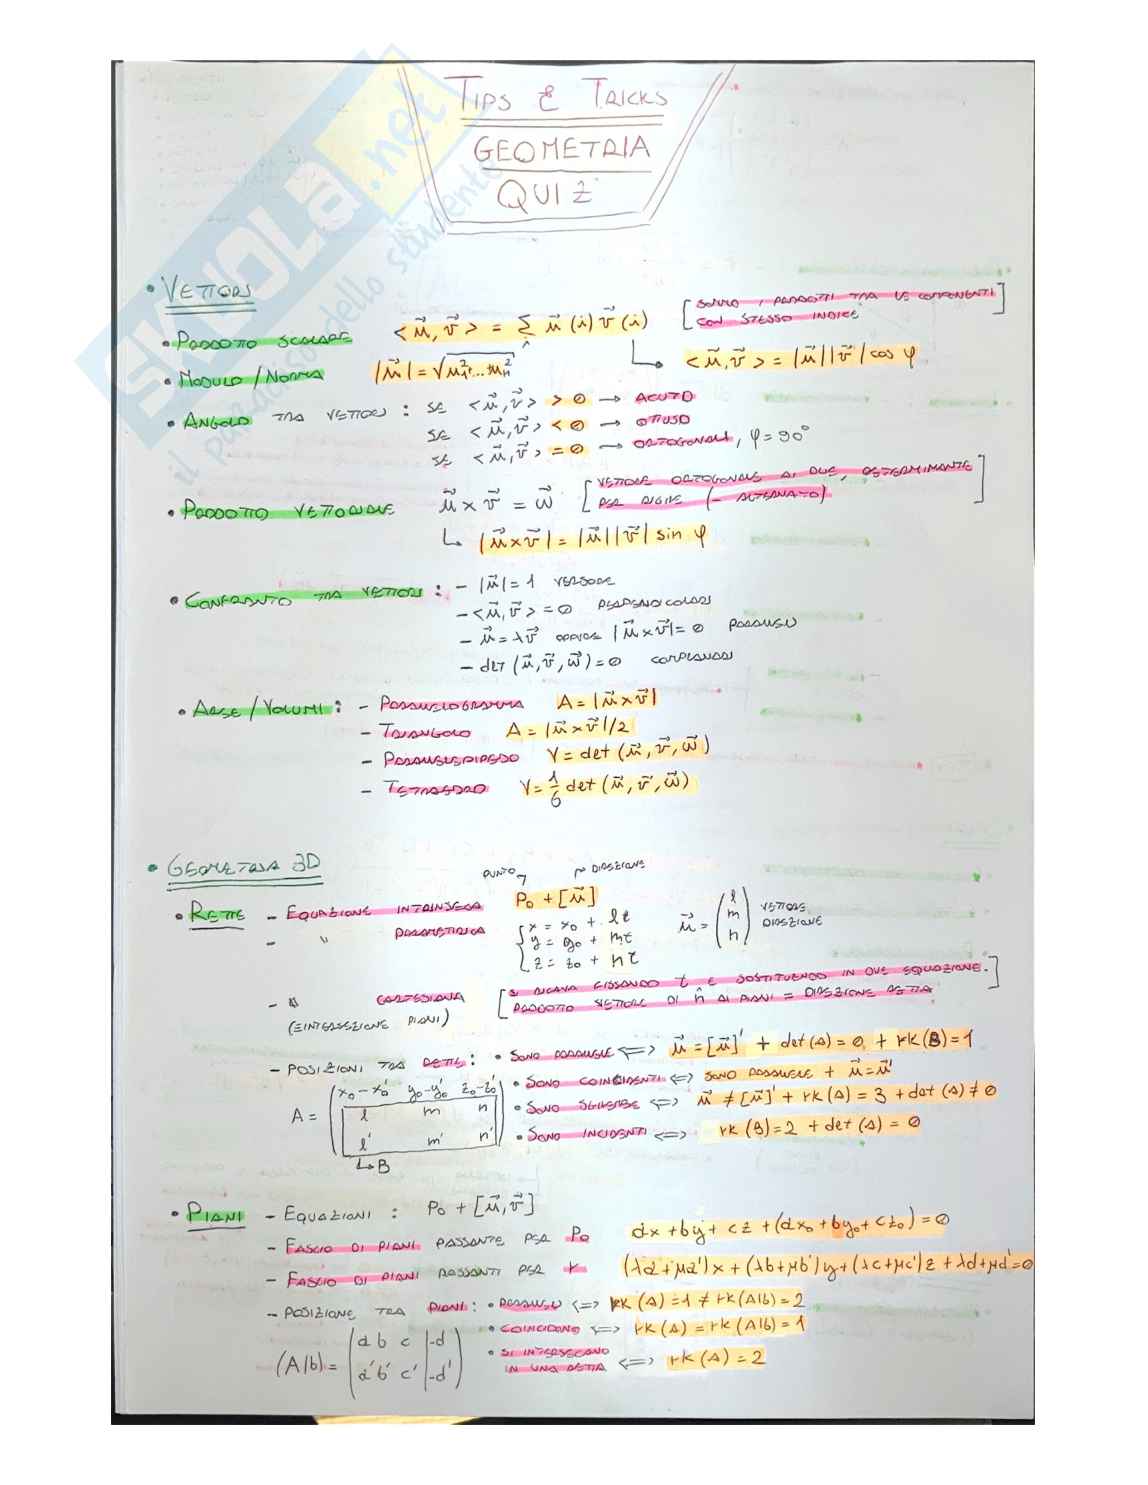 TIPS & TRICKS
GEOMETRIA
QUIZ
SKUOLA.net
il paradiso dello studente
• VETTORI
• PRODOTTO SCALARE <u⃗, v⃗> = Σ u⃗(i) v⃗(i) [SOMMO I PRODOTTI TRA LE COMPONENTI
i CON STESSO INDICE]
↳ <u⃗, v⃗> = |u⃗||v⃗| cos φ
• MODULO/NORMA |u⃗| = √u₁²+...u_n²
• ANGOLO TRA VETTORI : SE <u⃗, v⃗> > 0 → ACUTO
SE <u⃗, v⃗> < 0 → OTTUSO
SE <u⃗, v⃗> = 0 → ORTOGONALI, φ = 90°
• PRODOTTO VETTORIALE u⃗ × v⃗ = w⃗ [VETTORE ORTOGONALE AI DUE, DETERMINANTE
PER RIGHE (- ALTERNATO)]
↳ |u⃗ × v⃗| = |u⃗||v⃗| sin φ
• CONFRONTO TRA VETTORI : - |u⃗| = 1 VERSORE
- <u⃗, v⃗> = 0 PERPENDICOLARI
- u⃗ = λv⃗ OPPURE |u⃗ × v⃗| = 0 PARALLELI
- det(u⃗, v⃗, w⃗) = 0 COMPLANARI
• AREE/VOLUMI : - PARALLELOGRAMMA A = |u⃗ × v⃗|
- TRIANGOLO A = |u⃗ × v⃗|/2
- PARALLELEPIPEDO V = det(u⃗, v⃗, w⃗)
- TETRAEDRO V = 1/6 det(u⃗, v⃗, w⃗)
• GEOMETRIA 3D
PUNTO DIREZIONE
• RETTE - EQUAZIONE INTRINSECA P₀ + [u⃗]
- " PARAMETRICA { x = x₀ + lt u⃗ = (l m n) VETTORE DIREZIONE
y = y₀ + mt
z = z₀ + nt
- " CARTESIANA [SI RICAVA FISSANDO t E SOSTITUENDO IN DUE EQUAZIONE.
(≡INTERSEZIONE PIANI) PRODOTTO VETTORE DI n̂ AI PIANI = DIREZIONE RETTA]
- POSIZIONI TRA RETTE : • SONO PARALLELE ⟺ u⃗ = [u⃗]' + det(A) = 0, + rk(B) = 1
• SONO COINCIDENTI ⟺ SONO PARALLELE + u⃗ = u⃗'
• SONO SGHEMBE ⟺ u⃗ ≠ [u⃗]' + rk(A) = 3 + det(A) ≠ 0
• SONO INCIDENTI ⟺ rk(B) = 2 + det(A) = 0
x₀-x₀' y₀-y₀' z₀-z₀'
A = l m n
l' m' n'
↳ B
• PIANI - EQUAZIONI : P₀ + [u⃗, v⃗]
- FASCIO DI PIANI PASSANTE PER P₀ ax + by + cz + (ax₀ + by₀ + cz₀) = 0
- FASCIO DI PIANI PASSANTI PER r (λa+μa')x + (λb+μb')y + (λc+μc')z + λd+μd' = 0
- POSIZIONE TRA PIANI : • PARALLELI ⟺ rk(A) = 1 ≠ rk(A|b) = 2
• COINCIDONO ⟺ rk(A) = rk(A|b) = 1
• SI INTERSECANO
IN UNA RETTA ⟺ rk(A) = 2
(A|b) = a b c | -d
a' b' c' | -d'